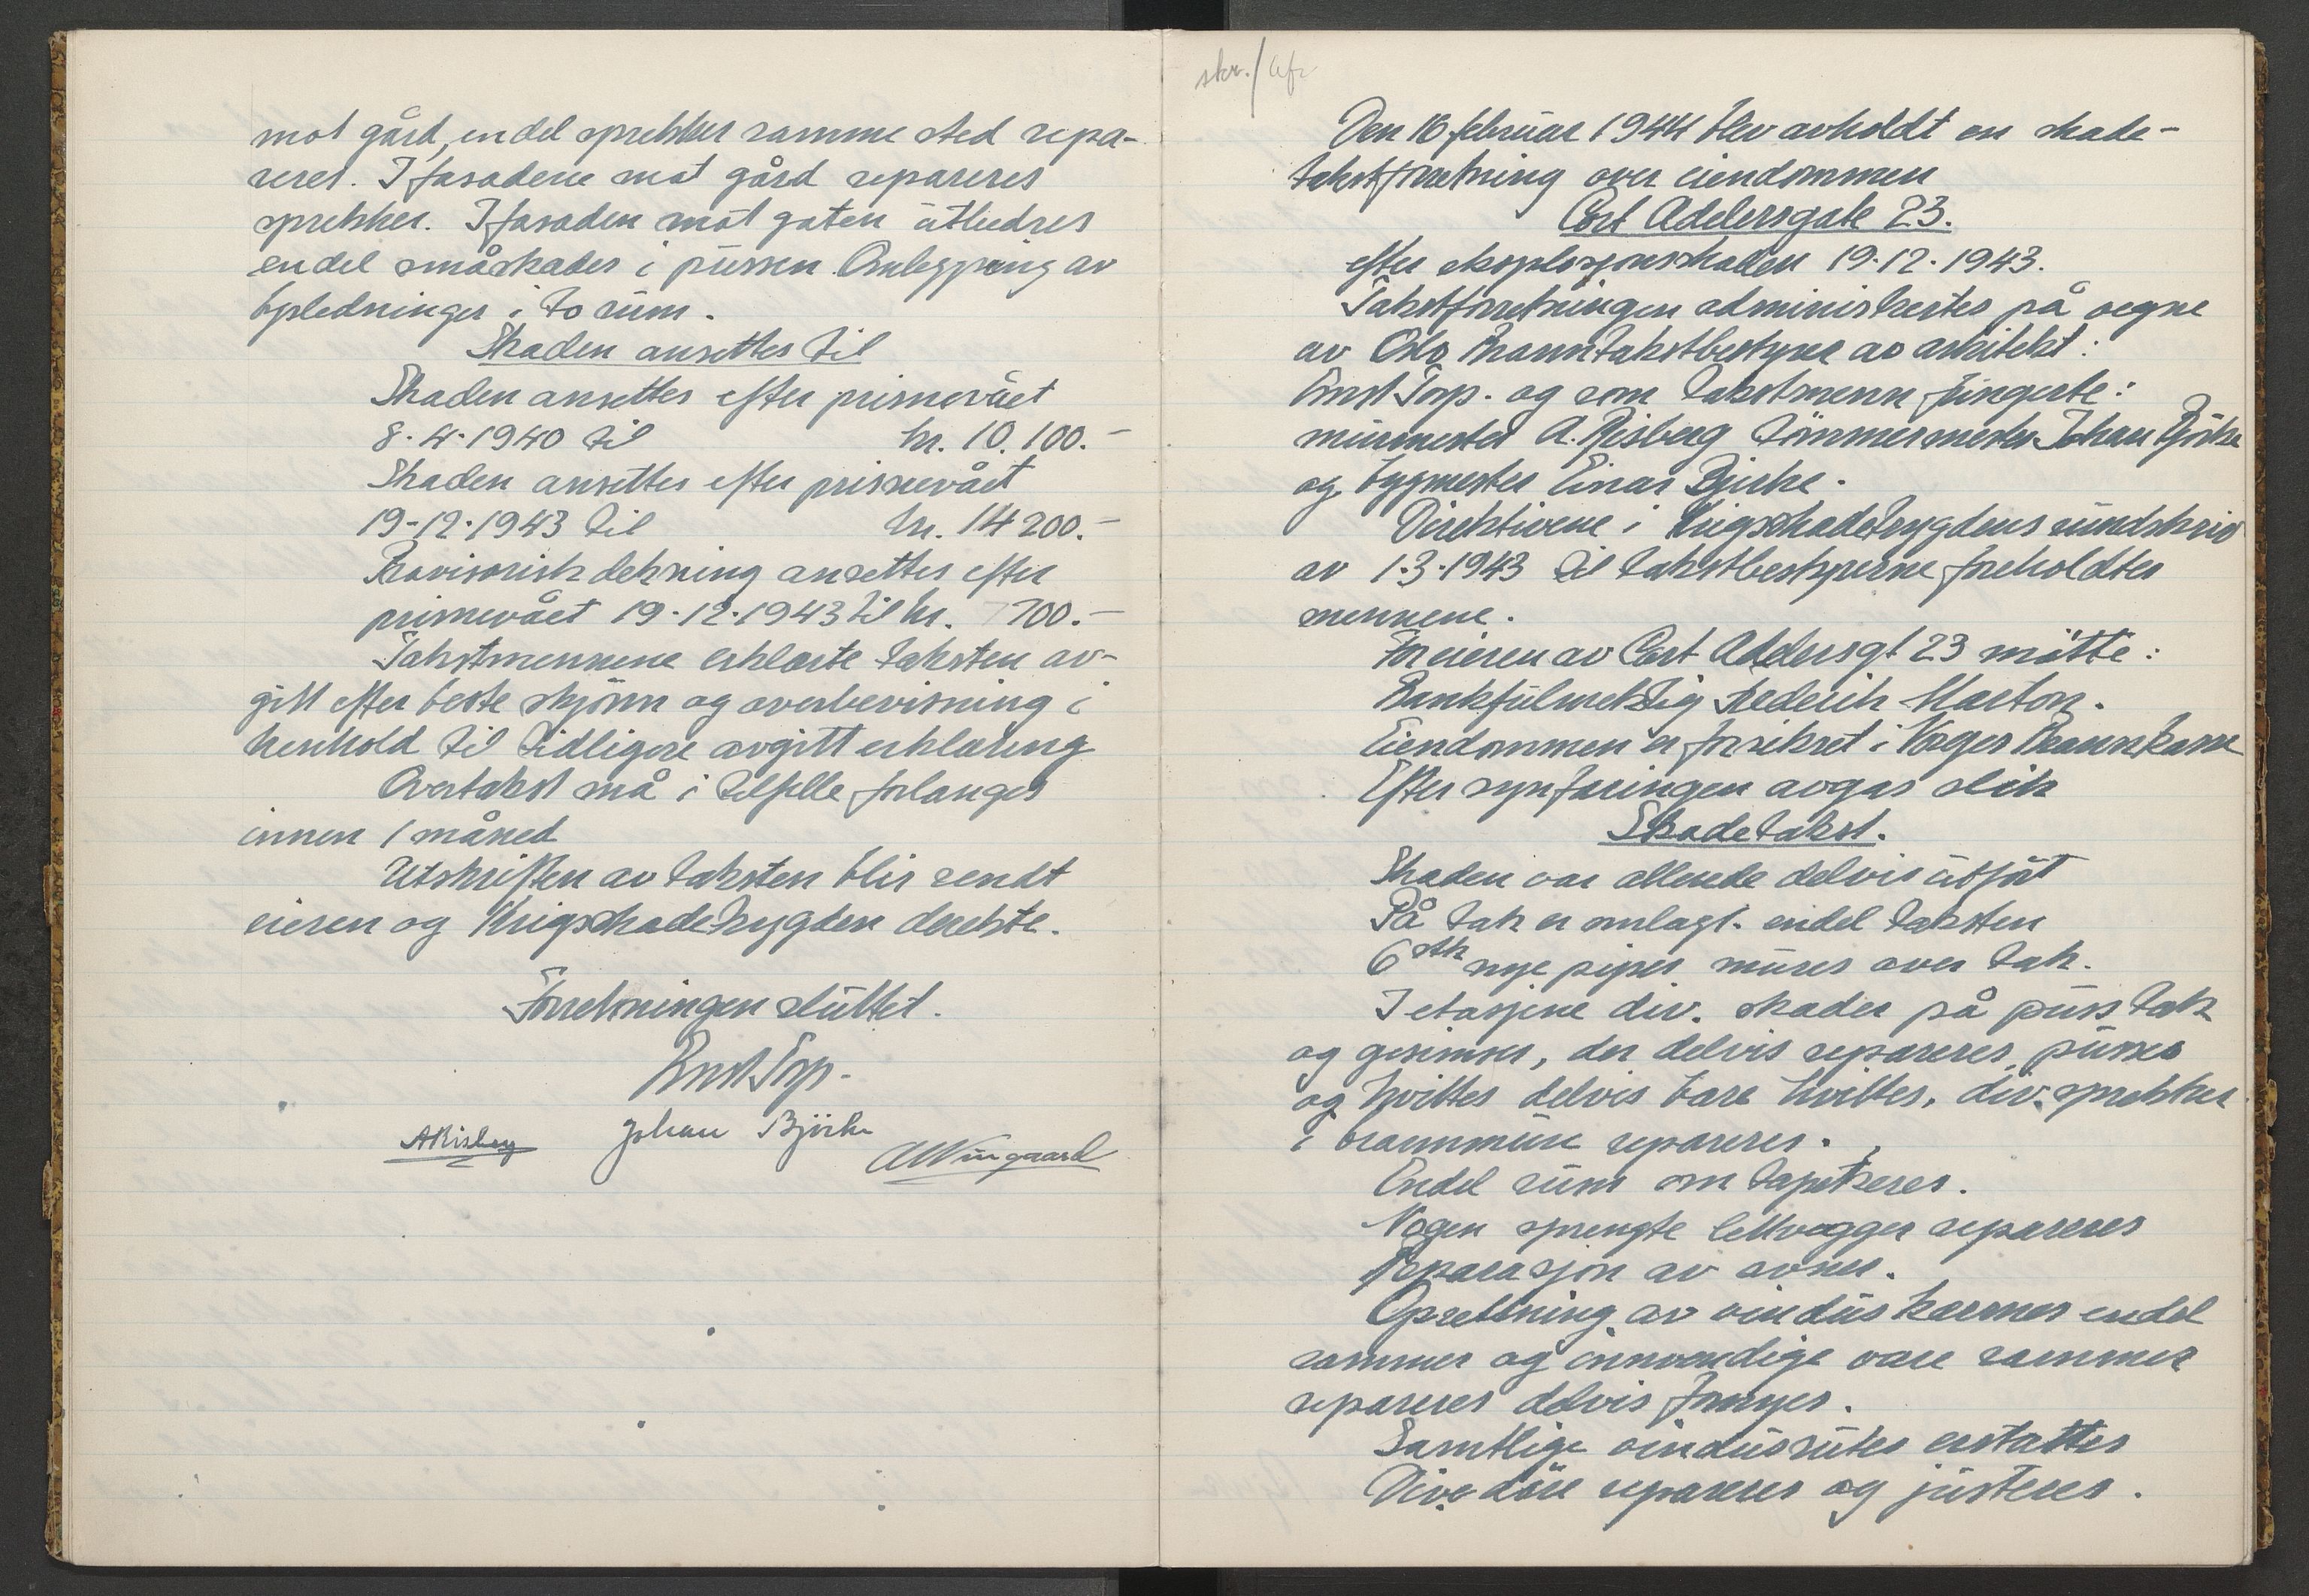 mot gård, endel sprekker samme sted repa-
reres. I fasadene mot gård repareres
sprekker. I fasaden mot gaten utbedres
endel småskader i pussen. Omlegging av
lysledninger i to rum.
Skaden ansettes til
Skaden ansettes efter prisnivået
8.4.1940 til kr. 10.100.-
Skaden ansettes efter prisnivået
19-12-1943 til kr. 14 200.-
Provisorisk dekning ansettes efter
prisnivået 19-12-1943 til kr. 700.-
Takstmennene erklærte taksten av-
gitt efter beste skjønn og overbevisning i
henhold til tidligere avgitt erklæring
Overtakst må i tilfelle forlanges
innen 1 måned
Utskriften av taksten blir sendt
eieren og Krigsskadetrygden direkte.
Forretningen sluttet.
Ernst Torp.
ARisberg Johan Björke
skr./
Den 16 februar 1944 blev avholdt en skade-
takstforretning over eiendommen
Cort Adelersgate 23.
efter eksplosjonsskaden 19.12.1943.
Takstforretningen administrertes på vegne
av Oslo Branntakstbestyrer av arkitekt:
Ernst Torp. og som takstmenn fungerte:
murmester A. Risberg tömmermester Johan Björke
og bygmester Einar Bjerke.
Direktivene i Krigsskadetrygdens rundskriv
av 1.3.1943 til takstbestyrerne foreholdtes
mennene.
For eieren av Cort Adelersgt 23 mötte:
Bankfulmektig Frederik Marton.
Eiendommen er forsikret i Norges Brannkasse
Efter synfaringen avgas slik
Skadetakst.
Skaden var allerede delvis utført
På tak er omlagt. endel taksten
6 stk nye piper mures over tak.
I etasjene div. skader på puss tak
og gesimser, der delvis repareres, pusses
og hvittes delvis bare hvittes, div. sprekker
i brannmure repareres.
Endel rum om tapetseres.
Nogen sprengte lettvegger repareres
Reparasjon av ovner.
Opretning av vinduskarmer endel
rammer og innvendige vare rammer
repareres delvis fornyes.
Samtlige vindusruter erstattes
Dive döre repareres og justeres.